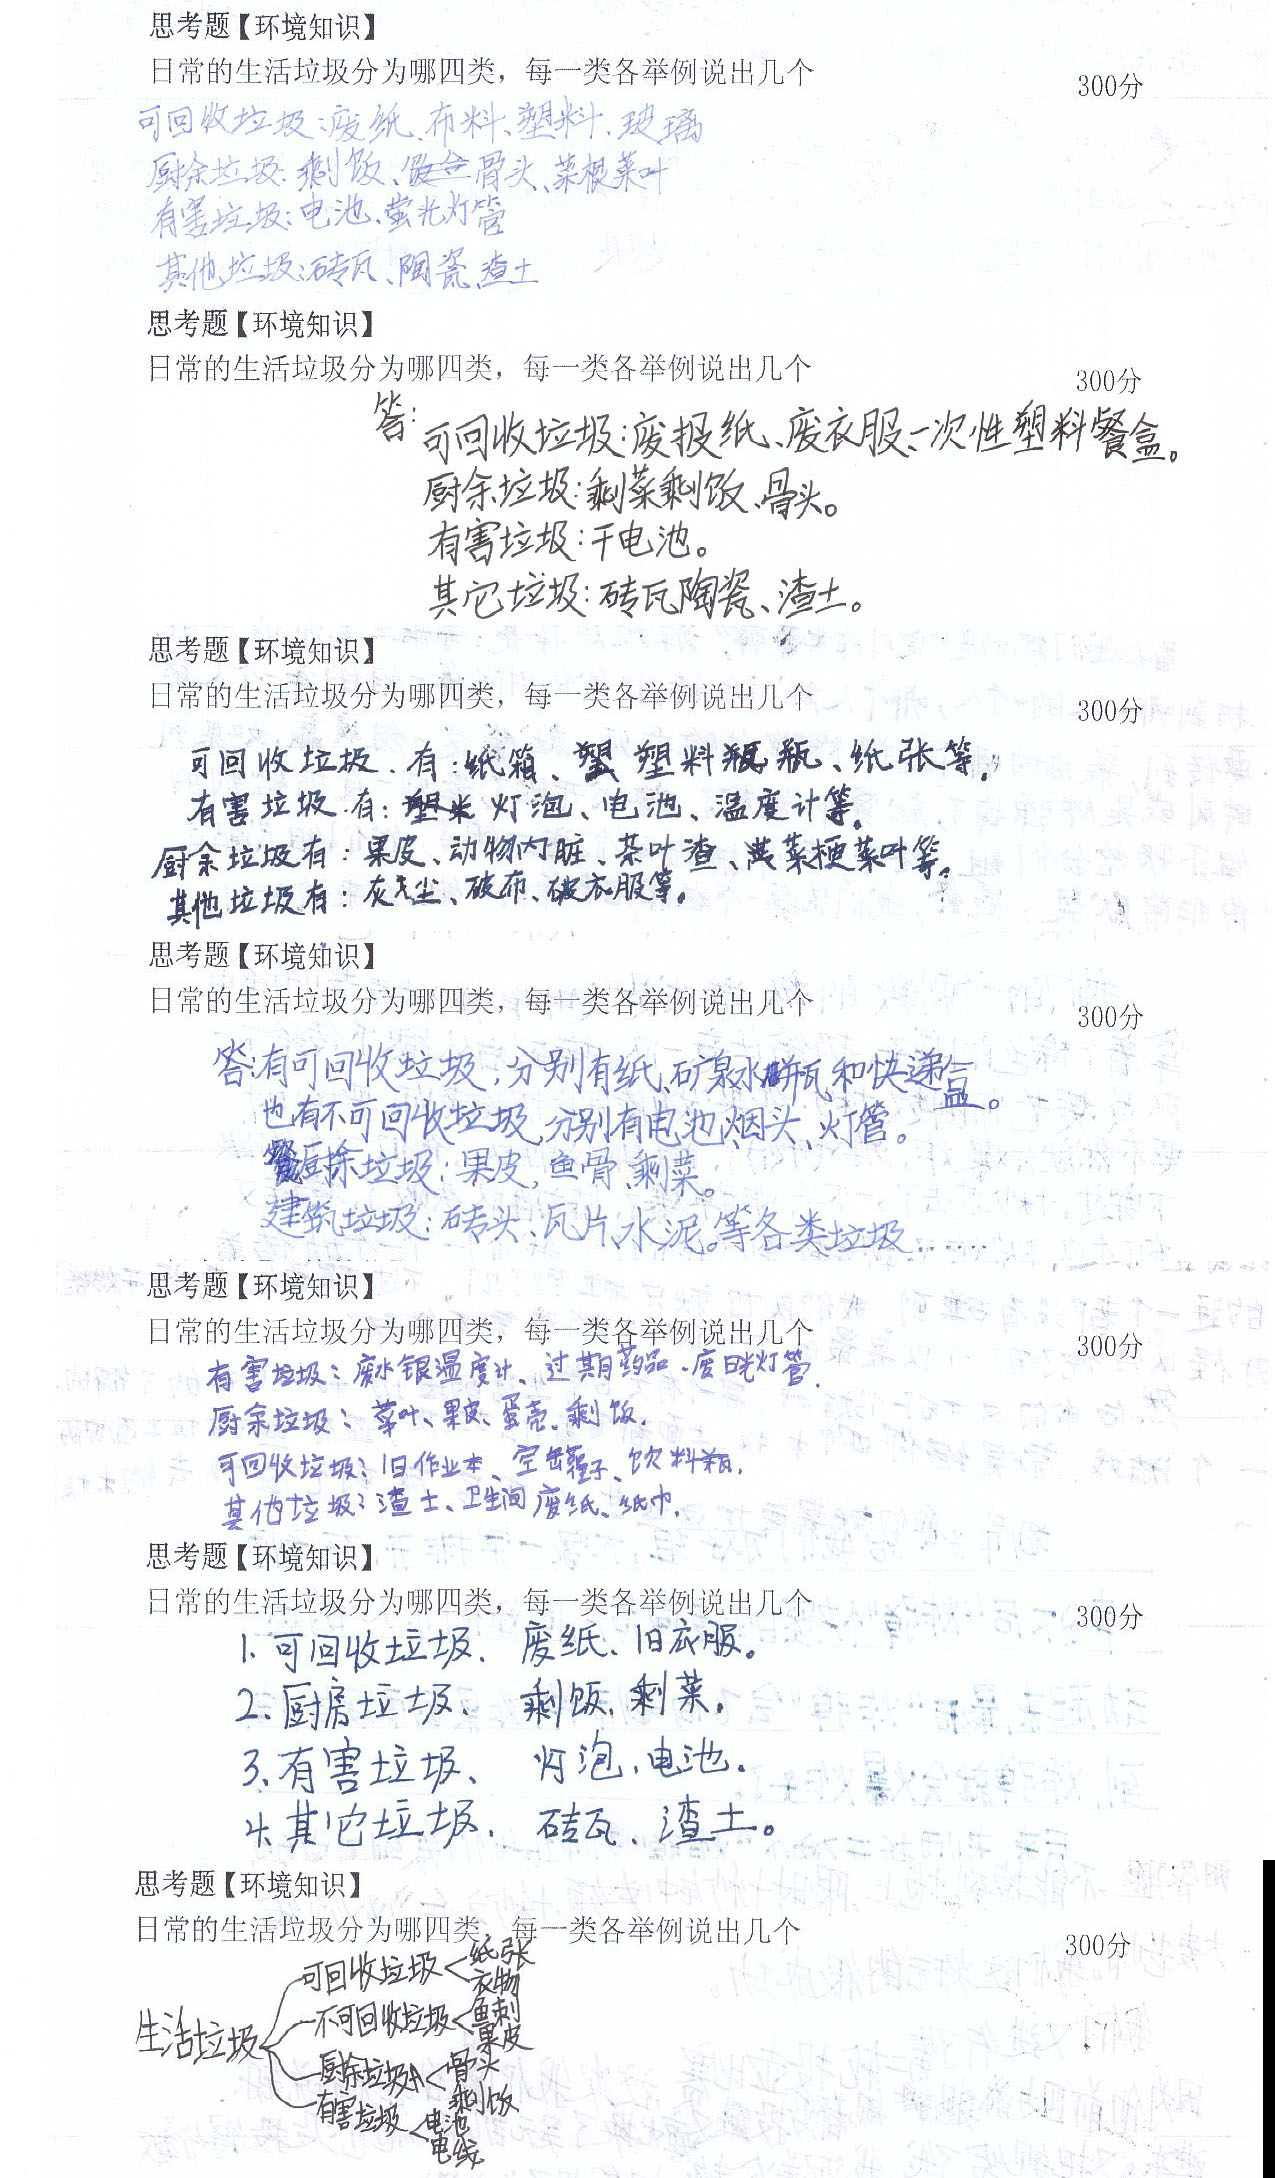 思考题【环境知识】
日常的生活垃圾分为哪四类，每一类各举例说出几个
300分
可回收垃圾:废纸、布料、塑料、玻璃
厨余垃圾:剩饭、骨头、菜根菜叶
有害垃圾:电池、萤光灯管
其他垃圾:砖瓦、陶瓷、渣土
思考题【环境知识】
日常的生活垃圾分为哪四类，每一类各举例说出几个
300分
答:可回收垃圾:废报纸、废衣服、一次性塑料餐盒。
厨余垃圾:剩菜剩饭、骨头。
有害垃圾:干电池。
其它垃圾:砖瓦陶瓷、渣土。
思考题【环境知识】
日常的生活垃圾分为哪四类，每一类各举例说出几个
300分
可回收垃圾.有:纸箱、塑料瓶、纸张等。
有害垃圾.有:灯泡、电池、温度计等。
厨余垃圾有:果皮、动物内脏、茶叶渣、菜梗菜叶等。
其他垃圾有:灰尘、破布、破衣服等。
思考题【环境知识】
日常的生活垃圾分为哪四类，每一类各举例说出几个
300分
答:有可回收垃圾,分别有纸、矿泉水瓶和快递盒。
也有不可回收垃圾,分别有电池、烟头、灯管。
厨除垃圾:果皮,鱼骨,剩菜。
建筑垃圾:砖头、瓦片,水泥。等各类垃圾……
思考题【环境知识】
日常的生活垃圾分为哪四类，每一类各举例说出几个
300分
有害垃圾:废水银温度计、过期药品、废日光灯管.
厨余垃圾:菜叶、果皮、蛋壳、剩饭.
可回收垃圾:旧作业本、空缶罐子、饮料瓶.
其他垃圾:渣土、卫生间废纸、纸巾.
思考题【环境知识】
日常的生活垃圾分为哪四类，每一类各举例说出几个
300分
1.可回收垃圾. 废纸、旧衣服。
2.厨房垃圾、 剩饭、剩菜。
3.有害垃圾、 灯泡、电池.
4.其它垃圾. 砖瓦、渣土。
思考题【环境知识】
日常的生活垃圾分为哪四类，每一类各举例说出几个
300分
生活垃圾
可回收垃圾
纸张
衣物
不可回收垃圾
鱼刺
果皮
厨除垃圾
骨头
剩饭
有害垃圾
电池
电线